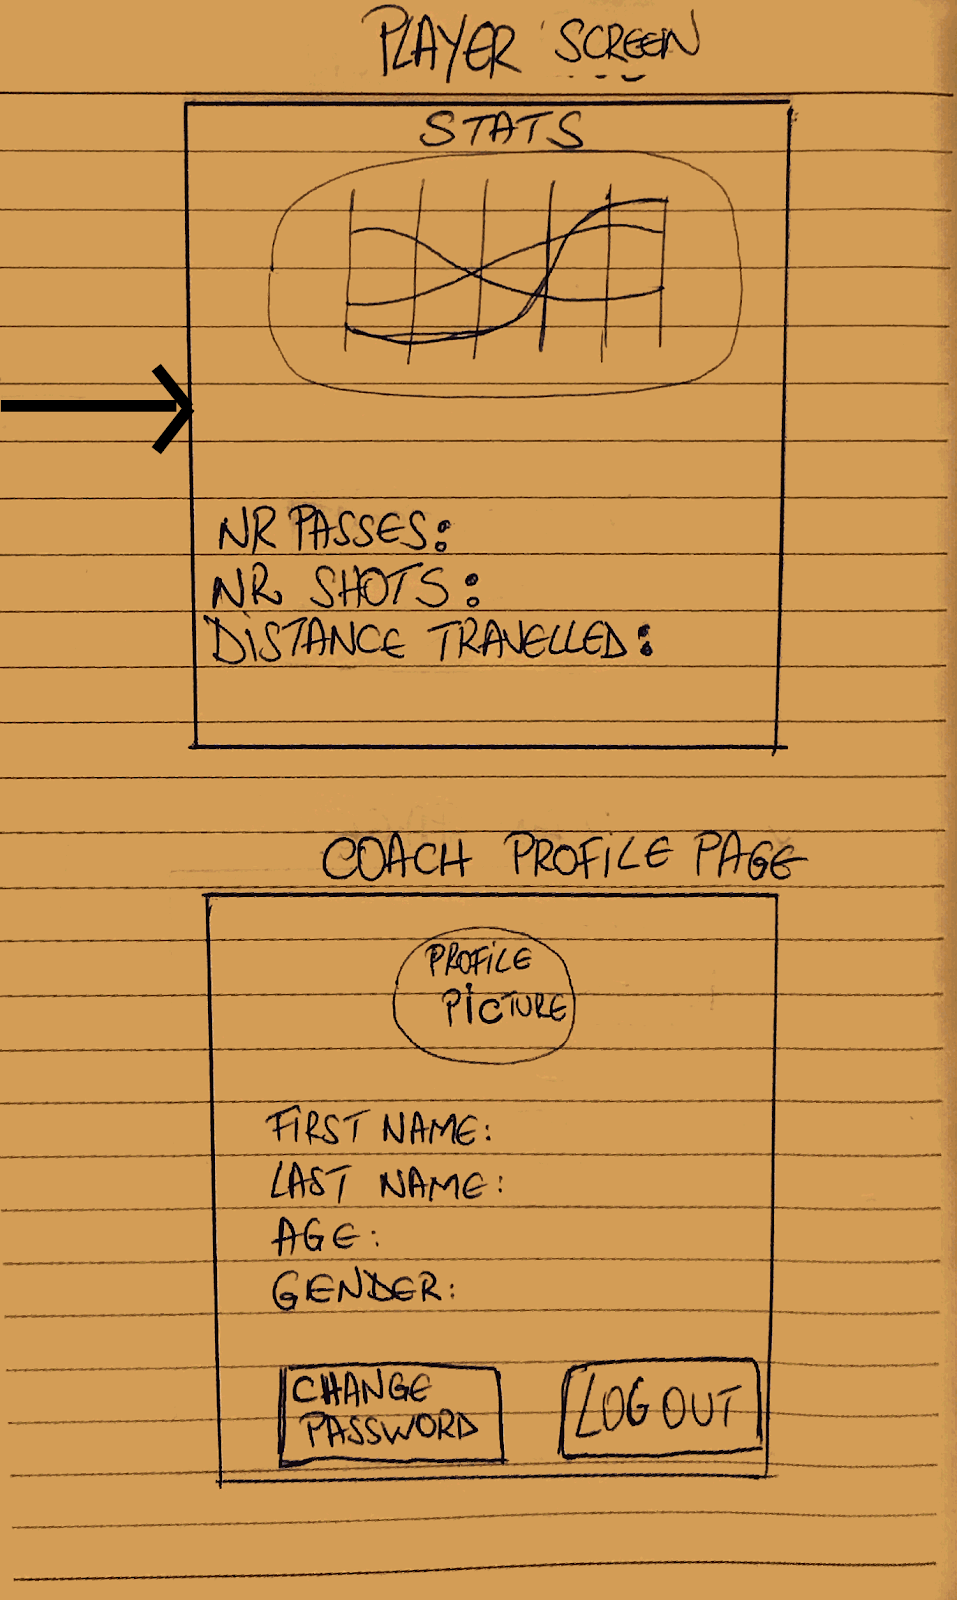 PLAYER SCREEN
STATS
NR PASSES:
NR SHOTS:
DISTANCE TRAVELLED:
COACH PROFILE PAGE
PROFILE
PICTURE
FIRST NAME:
LAST NAME:
AGE:
GENDER:
CHANGE
PASSWORD
LOG OUT